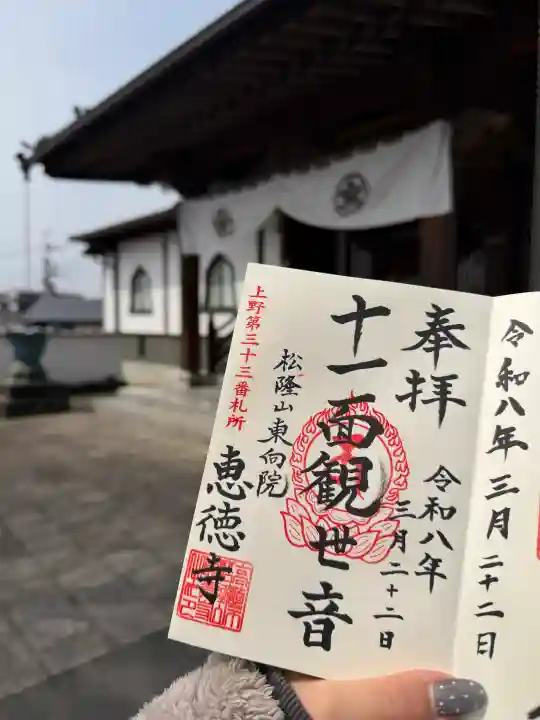 令和八年三月二十二日
奉拝
令和八年
三月二十二日
十一面観世音
松隆山東向院
恵徳寺
上野第三十三番札所